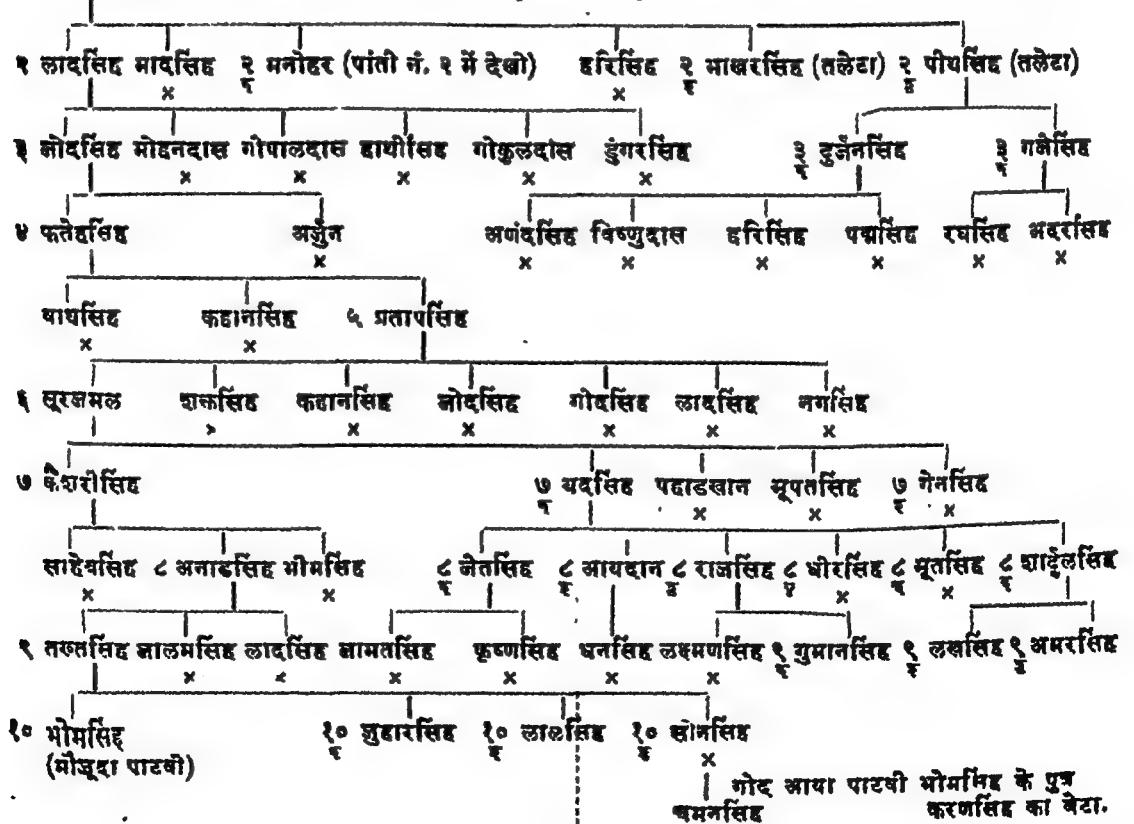 २ लादसिंह मादसिंह २/१ मनोहर (पांती नं. २ में देखो) हरिसिंह २/२ भाखरसिंह (तलेटा) २/३ पीथसिंह (तलेटा)
× ×
३ जोदसिंह मोहनदास गोपालदास हाथीसिंह गोकुलदास डुंगरसिंह ३/१ दुर्जनसिंह ३/२ गजेसिंह
× × × × ×
४ फतेहसिंह अर्जुन अणंदसिंह विष्णुदास हरिसिंह पद्मसिंह रघसिंह अदरसिंह
× × × × × × ×
वाघसिंह कहानसिंह ५ प्रतापसिंह
× ×
६ सूरजमल शक्तसिंह कहानसिंह जोदसिंह गोदसिंह लादसिंह जगसिंह
× × × × × ×
७ केशरीसिंह ७/१ यदसिंह पहाडखान भूपतसिंह ७/२ गेनसिंह
× × ×
साहेबसिंह ८ अनाडसिंह भीमसिंह ८/१ जेतसिंह ८/२ आयदान ८/३ राजसिंह ८/४ धीरसिंह ८/५ भूतसिंह ८/६ शार्दूलसिंह
× × × ×
९ तख्तसिंह जालमसिंह लादसिंह जामतसिंह कृष्णसिंह धनसिंह लक्ष्मणसिंह ९/१ गुमानसिंह ९/२ लखसिंह ९/३ अमरसिंह
× × × × × ×
१० भोमसिंह १०/१ जुहारसिंह १०/२ लालसिंह १०/३ सोनसिंह
(मौजूदा पाटवी) ×
गोद आया पाटवी भोमसिंह के पुत्र
चमनसिंह करणसिंह का बेटा.